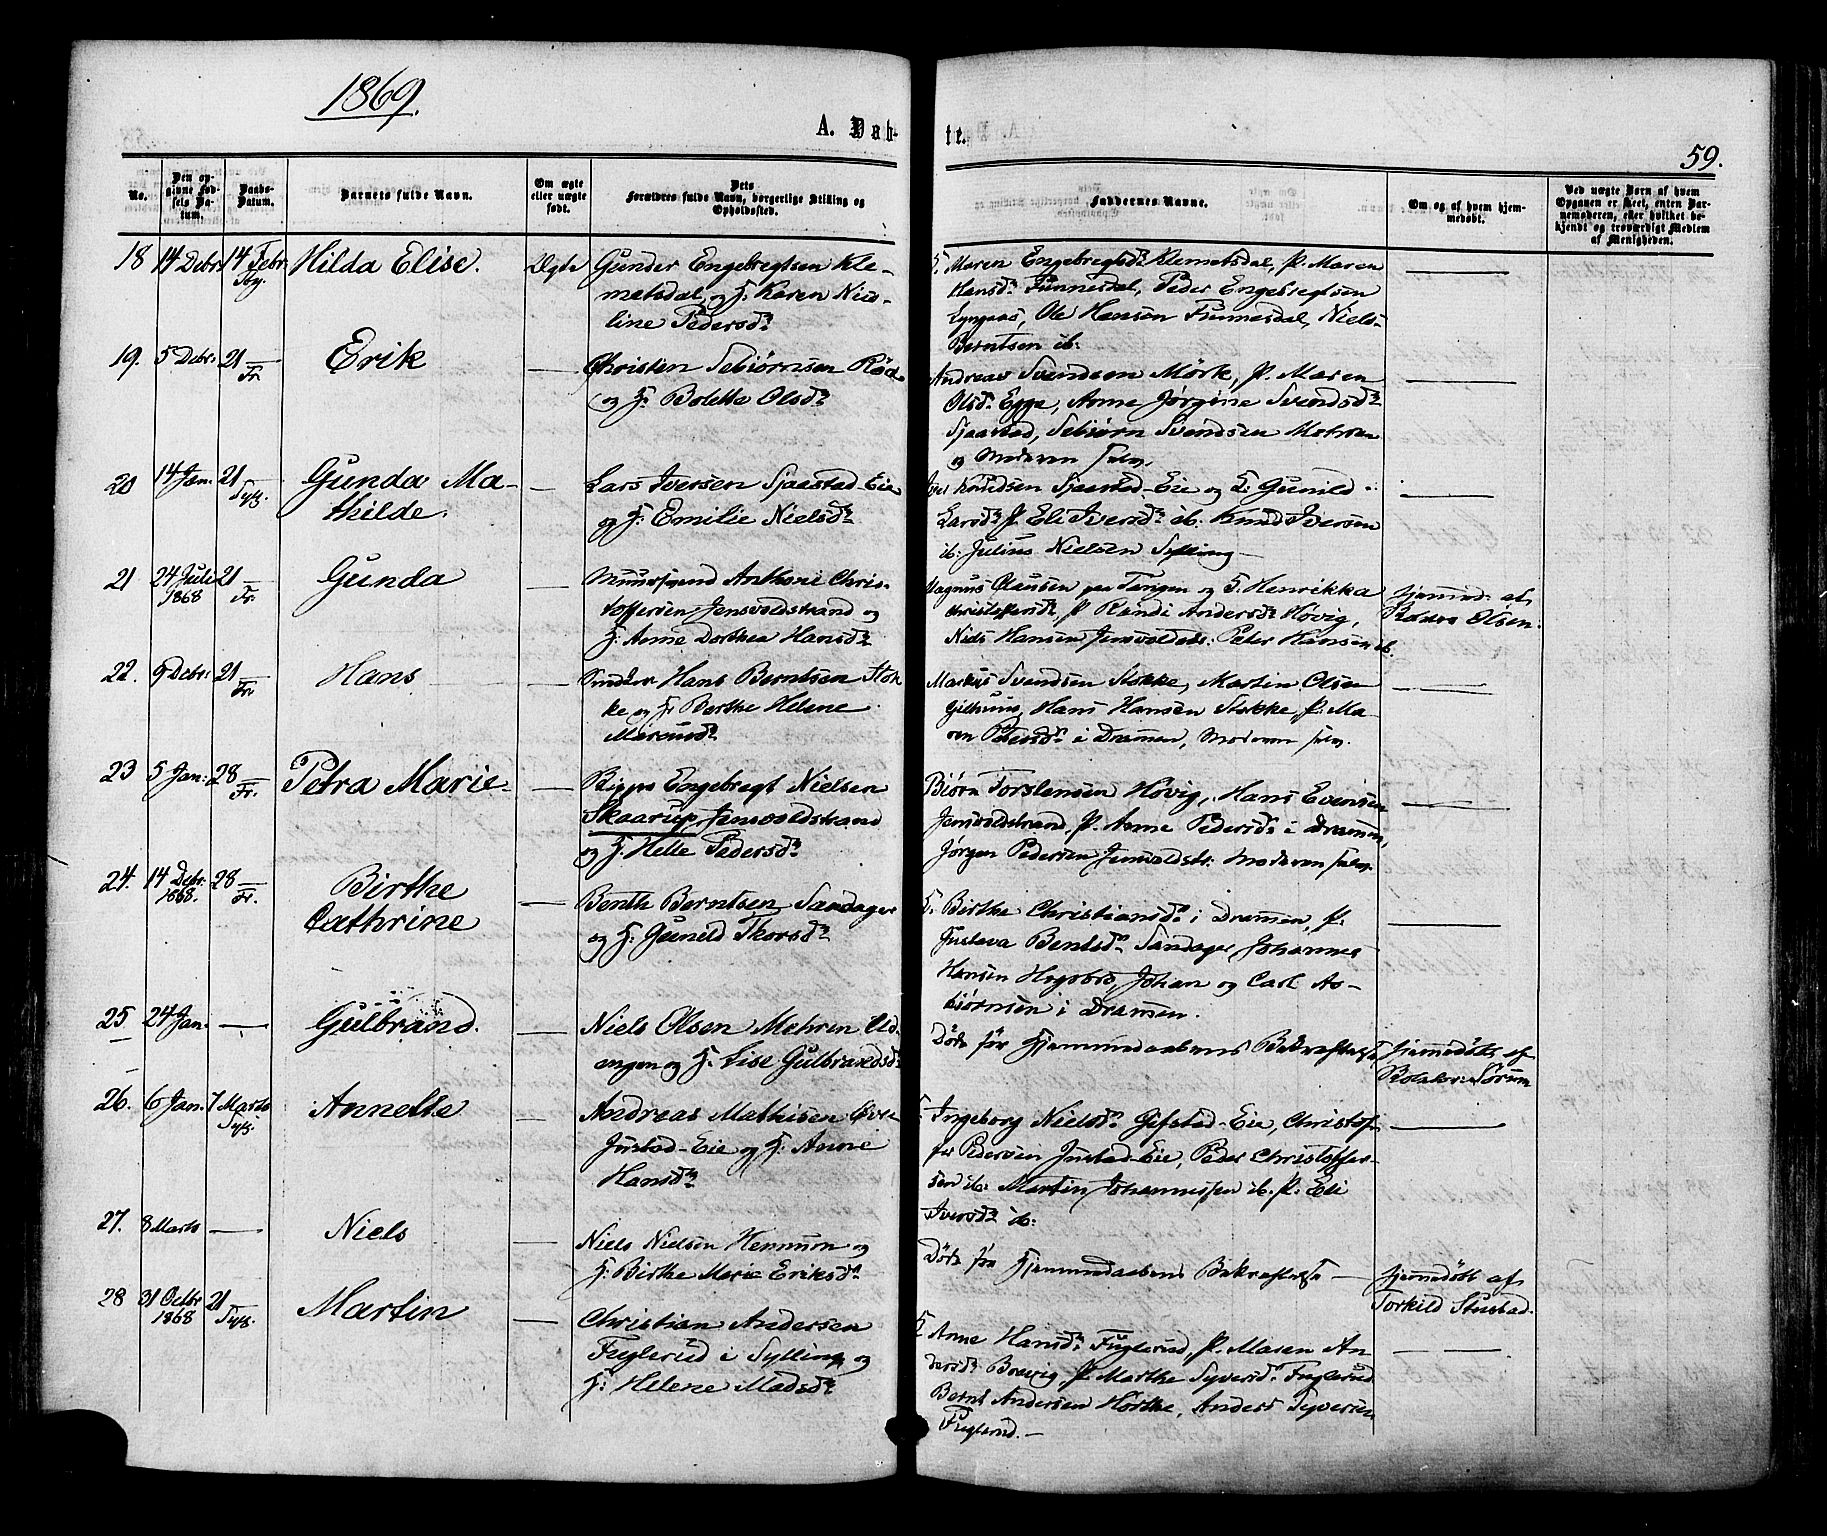 1869.
A. Døb-
te.
59.
No.
Den op-
givne Fød-
sels Da-
tum.
Daabs-
Datum.
Barnets fulde Navn.
Om ægte
eller uægte
født.
Dets
Forældres fulde Navn, borgerlige Stilling og
Opholdssted.
Faddernes Navne.
Om og af hvem hjem-
medøbt.
Ved uægte Børn af hvem
Opgaven er skeet, enten Bar-
nemoderen, eller hvilket be-
kjendt og troværdigt Medlem
af Menigheden.
18 14 Debr. 14 Febr. Hilda Elise. Ægte Gunder Engebregtsen Kle-
metsdal og H. Karen Nico-
line Pedersdr
F. Maren Engebregtsdr Klemetsdal, P. Maren
Hansdr Funnesdal, Peder Engebregtsen
Lyngaas, Ole Hansen Funnesdal, Niels
Berntsen ib.
19. 5 Debr. 21 Fr. Erik — Christen Sebiørnsen Rød
og H. Bolette Olsdr
Andreas Svendsen Mörk, P. Maren
Olsdr Egge, Anne Jørgine Svendsdr
Sjaastad, Sebiørn Svendsen Mehren
og Moderen selv.
20 14 Jan. 21 Syl. Gunda Ma-
thilde. — Lars Iversen Sjaastad-Eie
og H. Emilie Nielsdr
Iver Knudsen Sjaastad-Eie og H. Gunild
Larsdr P. Eli Iversdr ib. Knud Iversen
ib. Julius Nielsen Sylling —
21 24 Juli 21 Fr.
1868
Gunda — Anthoni Chris-
toffersen Jensvoldstrand og
H. Anne Dorthea Hansdr
Magnus Clausen paa Tangen og H. Henrikka
Christoffersdr, P. Randi Andersdr Høvig,
Niels Hansen Jensvoldstr. Peter Hansen ib.
Hjemmed. af
Olsen.
22. 9 Debr. 21 Fr. Hans — Hans Berntsen Stok
ke og H. Berthe Helene
Marcusdr
Markus Svendsen Stokke, Martin Olsen
Hans Hansen Stokke, P. Ma-
ren Petersdr i Drammen, Moderen selv.
23 5 Jan. 28 Fr. Petra Marie — Engebregt Nielsen
Skaarup, Jensvoldstrand
og H. Helle Pedersdr
Biørn Torstensen Høvig, Hans Evensen
Jensvoldstrand, P. Anne Pedersdr i Drammen,
Jørgen Pedersen Jensvoldstr. Moderen selv.
24. 14 Debr. 28 Fr.
1868.
Birthe
Cathrine — Bernt Berntsen Sandager
og H. Gunild Thorsdr
F. Birthe Christiansdr i Drammen, P.
Gustava Bentsdr Sandager, Johannes
Hansen Hogsbro, Johan og Carl As-
biørnsen i Dramen.
25. 24 Jan. — Gulbrand. — Niels Olsen Mehren Ød-
engen og H. Lise Gulbrandsdr
Døde før Hjemmedaabens Bekræftelse
Hjemmedøbt af
Rolstadsørum
26. 6 Jan. 7 Marts Syl. Annette — Andreas Mathisen Øvre
Justad-Eie og H. Anne
Hansdr
F. Ingeborg Nielsdr Gifstad-Eie, Christof-
fer Pedersen Justad-Eie, Peder Christoffer-
sen ib. Martin Johannessen ib. P. Eli
Iversdr ib.
27. 8 Marts — Niels — Niels Nielsen Hennum og
H. Birthe Marie Eriksdr
Døde før Hjemmedaabens Bekræftelse —
Hjemmedøbt af
Torkild Stustad.
28 31 Octbr 21 Syl.
1868
Martin — Christian Andersen
Fuglerud i Sylling og
H. Helene Madsdr
F. Anne Hansdr Fuglerud, P. Maren An-
dersdr Brevig, P. Marthe Syversdr Fuglerud
Bernt Andersen Hørthe, Anders Syversen
Fuglerud. —